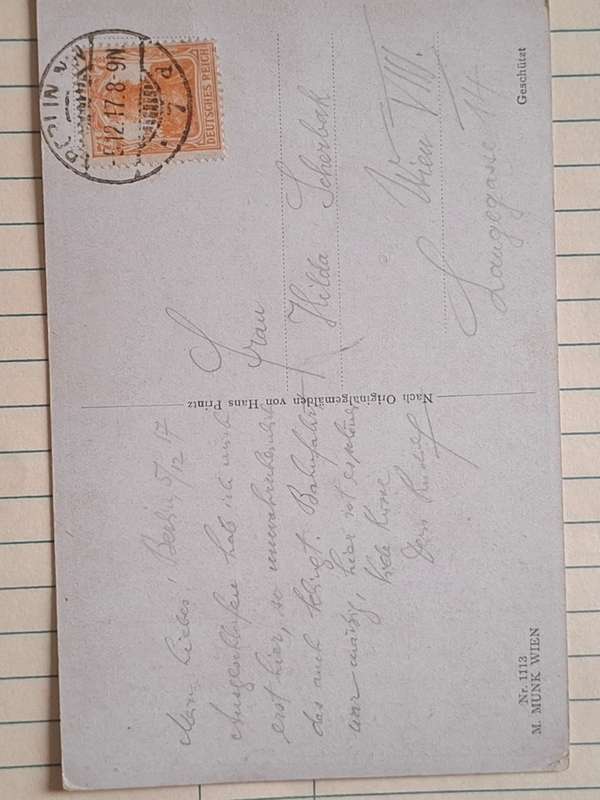 Mein Liebes, Berlin 5/12 17
Ausgeschlafen hab ich mich
erst hier, so unwahrscheinlich
das auch klingt. Bahnfahrt
war mäßig, hier ist es schöner
Viele Küsse
Dein Rudolf
Nach Originalgemälden von Hans Printz
Nr. 1113
M. MUNK WIEN
BERLIN
-5.12.17.8-9N.
DEUTSCHES REICH
Frau
Hilda Scherbak
Wien VIII.
Langegasse 14
Geschützt